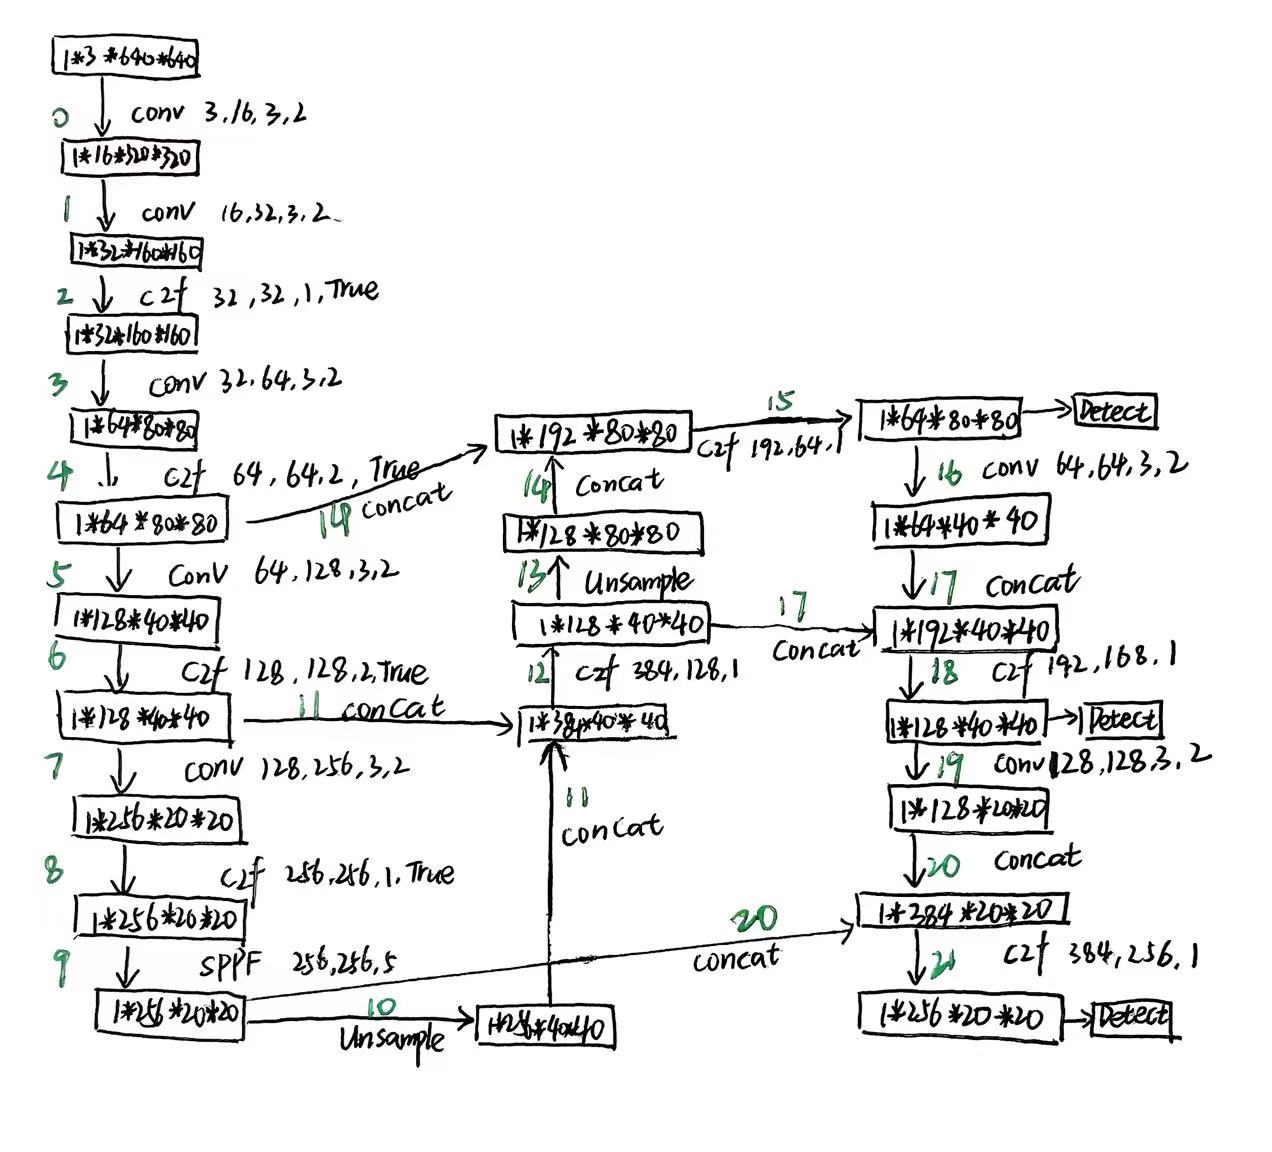 1*3*640*640
0 conv 3,16,3,2
1*16*320*320
1 conv 16,32,3,2
1*32*160*160
2 c2f 32,32,1,True
1*32*160*160
3 conv 32,64,3,2
1*64*80*80
4 c2f 64,64,2,True
1*64*80*80
14 concat
5 conv 64,128,3,2
1*128*40*40
6 c2f 128,128,2,True
1*128*40*40
11 concat
7 conv 128,256,3,2
1*256*20*20
8 c2f 256,256,1,True
1*256*20*20
9 SPPF 256,256,5
1*256*20*20
10
Unsample
1*256*40*40
11
concat
1*384*40*40
12 c2f 384,128,1
1*128*40*40
13 Unsample
1*128*80*80
14 concat
1*192*80*80
15
c2f 192,64,1
1*64*80*80
Detect
16 conv 64,64,3,2
1*64*40*40
17 concat
17
concat
1*192*40*40
18 c2f 192,168,1
1*128*40*40
Detect
19 conv 128,128,3,2
1*128*20*20
20 concat
20
concat
1*384*20*20
21 c2f 384,256,1
1*256*20*20
Detect